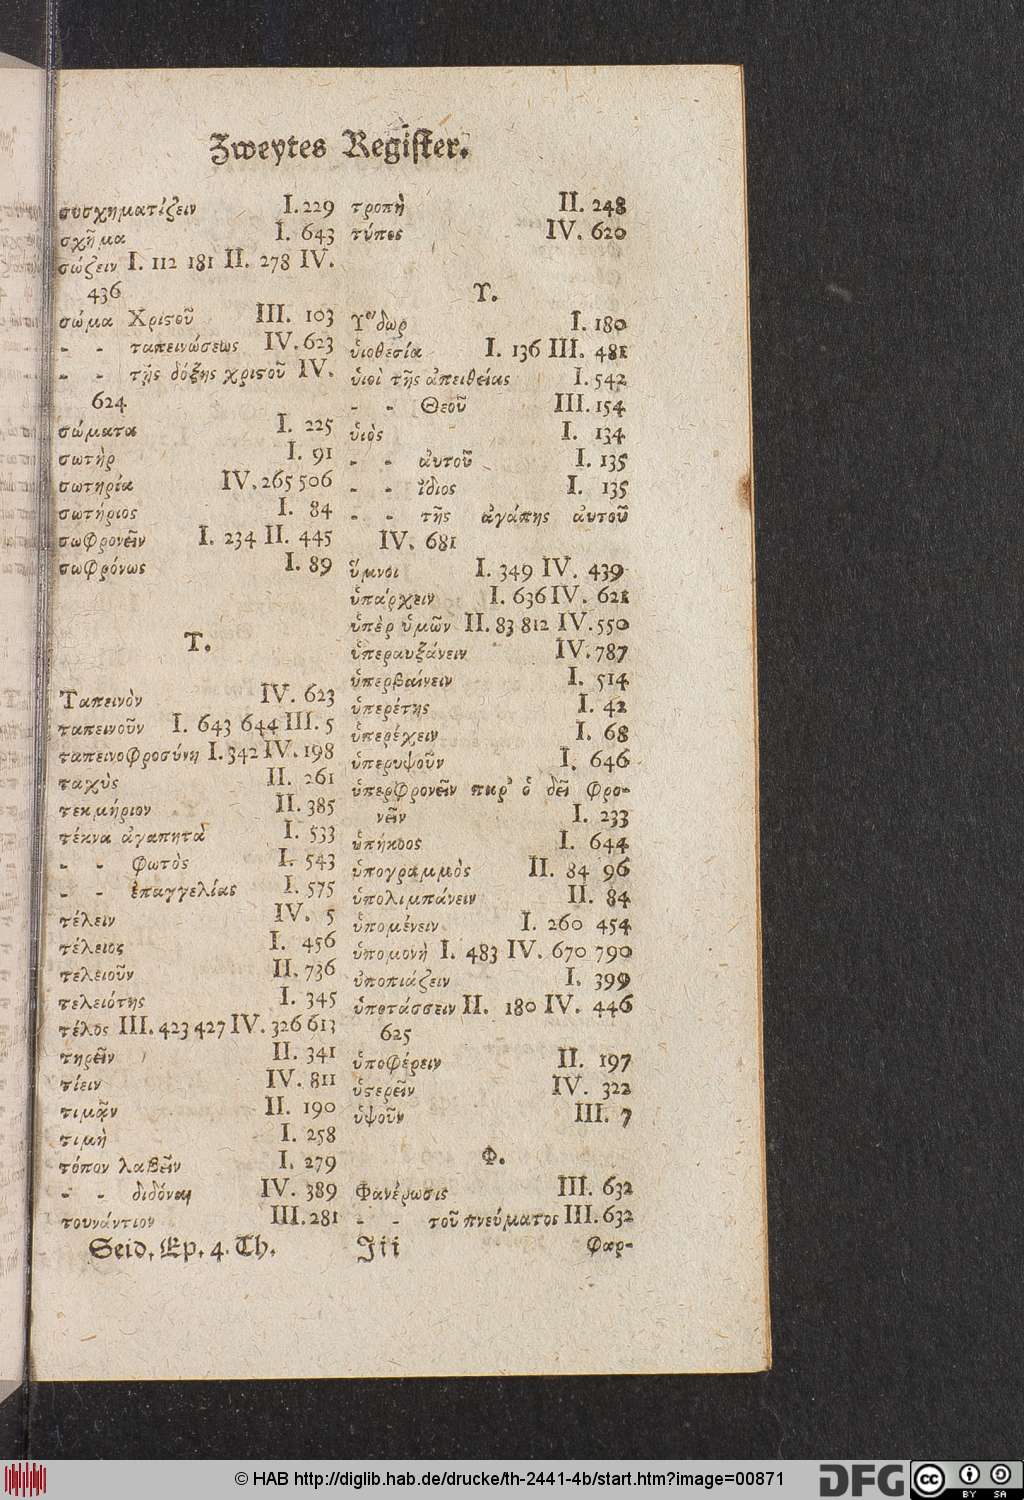 Zweytes Register.
συσχηματίζειν I. 229
σχῆμα I. 643
σώζειν I. 112 181 II. 278 IV.
436
σώμα Χριϛοῦ III. 103
- - ταπεινώσεως IV. 623
- - τῆς δόξης χριϛοῦ IV.
624
σώματα I. 225
σωτὴρ I. 91
σωτηρία IV. 265 506
σωτήριος I. 84
σωφρονεῖν I. 234 II. 445
σωφρόνως I. 89
T.
Ταπεινὸν IV. 623
ταπεινοῦν I. 643 644 III. 5
ταπεινοφροσύνη I. 342 IV. 198
ταχὺς II. 261
τεκμήριον II. 385
τέκνα ἀγαπητὰ I. 533
- - φωτὸς I. 543
- - ἐπαγγελίας I. 575
τέλειν IV. 5
τέλειος I. 456
τελειοῦν II. 736
τελειότης I. 345
τέλος III. 423 427 IV. 326 613
τηρεῖν II. 341
τίειν IV. 811
τιμᾷν II. 190
τιμὴ I. 258
τόπον λαβεῖν I. 279
- - διδόναι IV. 389
τουνάντιον III. 281
τροπὴ II. 248
τύπος IV. 620
Υ.
Ὕδωρ I. 180
ὑιοθεσία I. 136 III. 481
ὑιοὶ τῆς ἀπειθείας I. 542
- - Θεοῦ III. 154
ὑιὸς I. 134
- - ἀυτοῦ I. 135
- - ἴδιος I. 135
- - τῆς ἀγάπης ἀυτοῦ
IV. 681
ὕμνοι I. 349 IV. 439
ὑπάρχειν I. 636 IV. 621
ὑπὲρ ὑμῶν II. 83 812 IV. 550
ὑπεραυξάνειν IV. 787
ὑπερβαίνειν I. 514
ὑπερέτης I. 42
ὑπερέχειν I. 68
ὑπερυψοῦν I. 646
ὑπερφρονεῖν παρ' ὁ δεῖ φρο-
νεῖν I. 233
ὑπήκοος I. 644
ὑπογραμμὸς II. 84 96
ὑπολιμπάνειν II. 84
ὑπομένειν I. 260 454
ὑπομονὴ I. 483 IV. 670 790
ὑποπιάζειν I. 399
ὑποτάσσειν II. 180 IV. 446
625
ὑποφέρειν II. 197
ὑϛερεῖν IV. 322
ὑψοῦν III. 7
Φ.
Φανέρωσις III. 632
- - τοῦ πνεύματος III. 632
Seid. Ep. 4. Th. Jii φαρ-
© HAB http://diglib.hab.de/drucke/th-2441-4b/start.htm?image=00871
DFG
cc BY SA